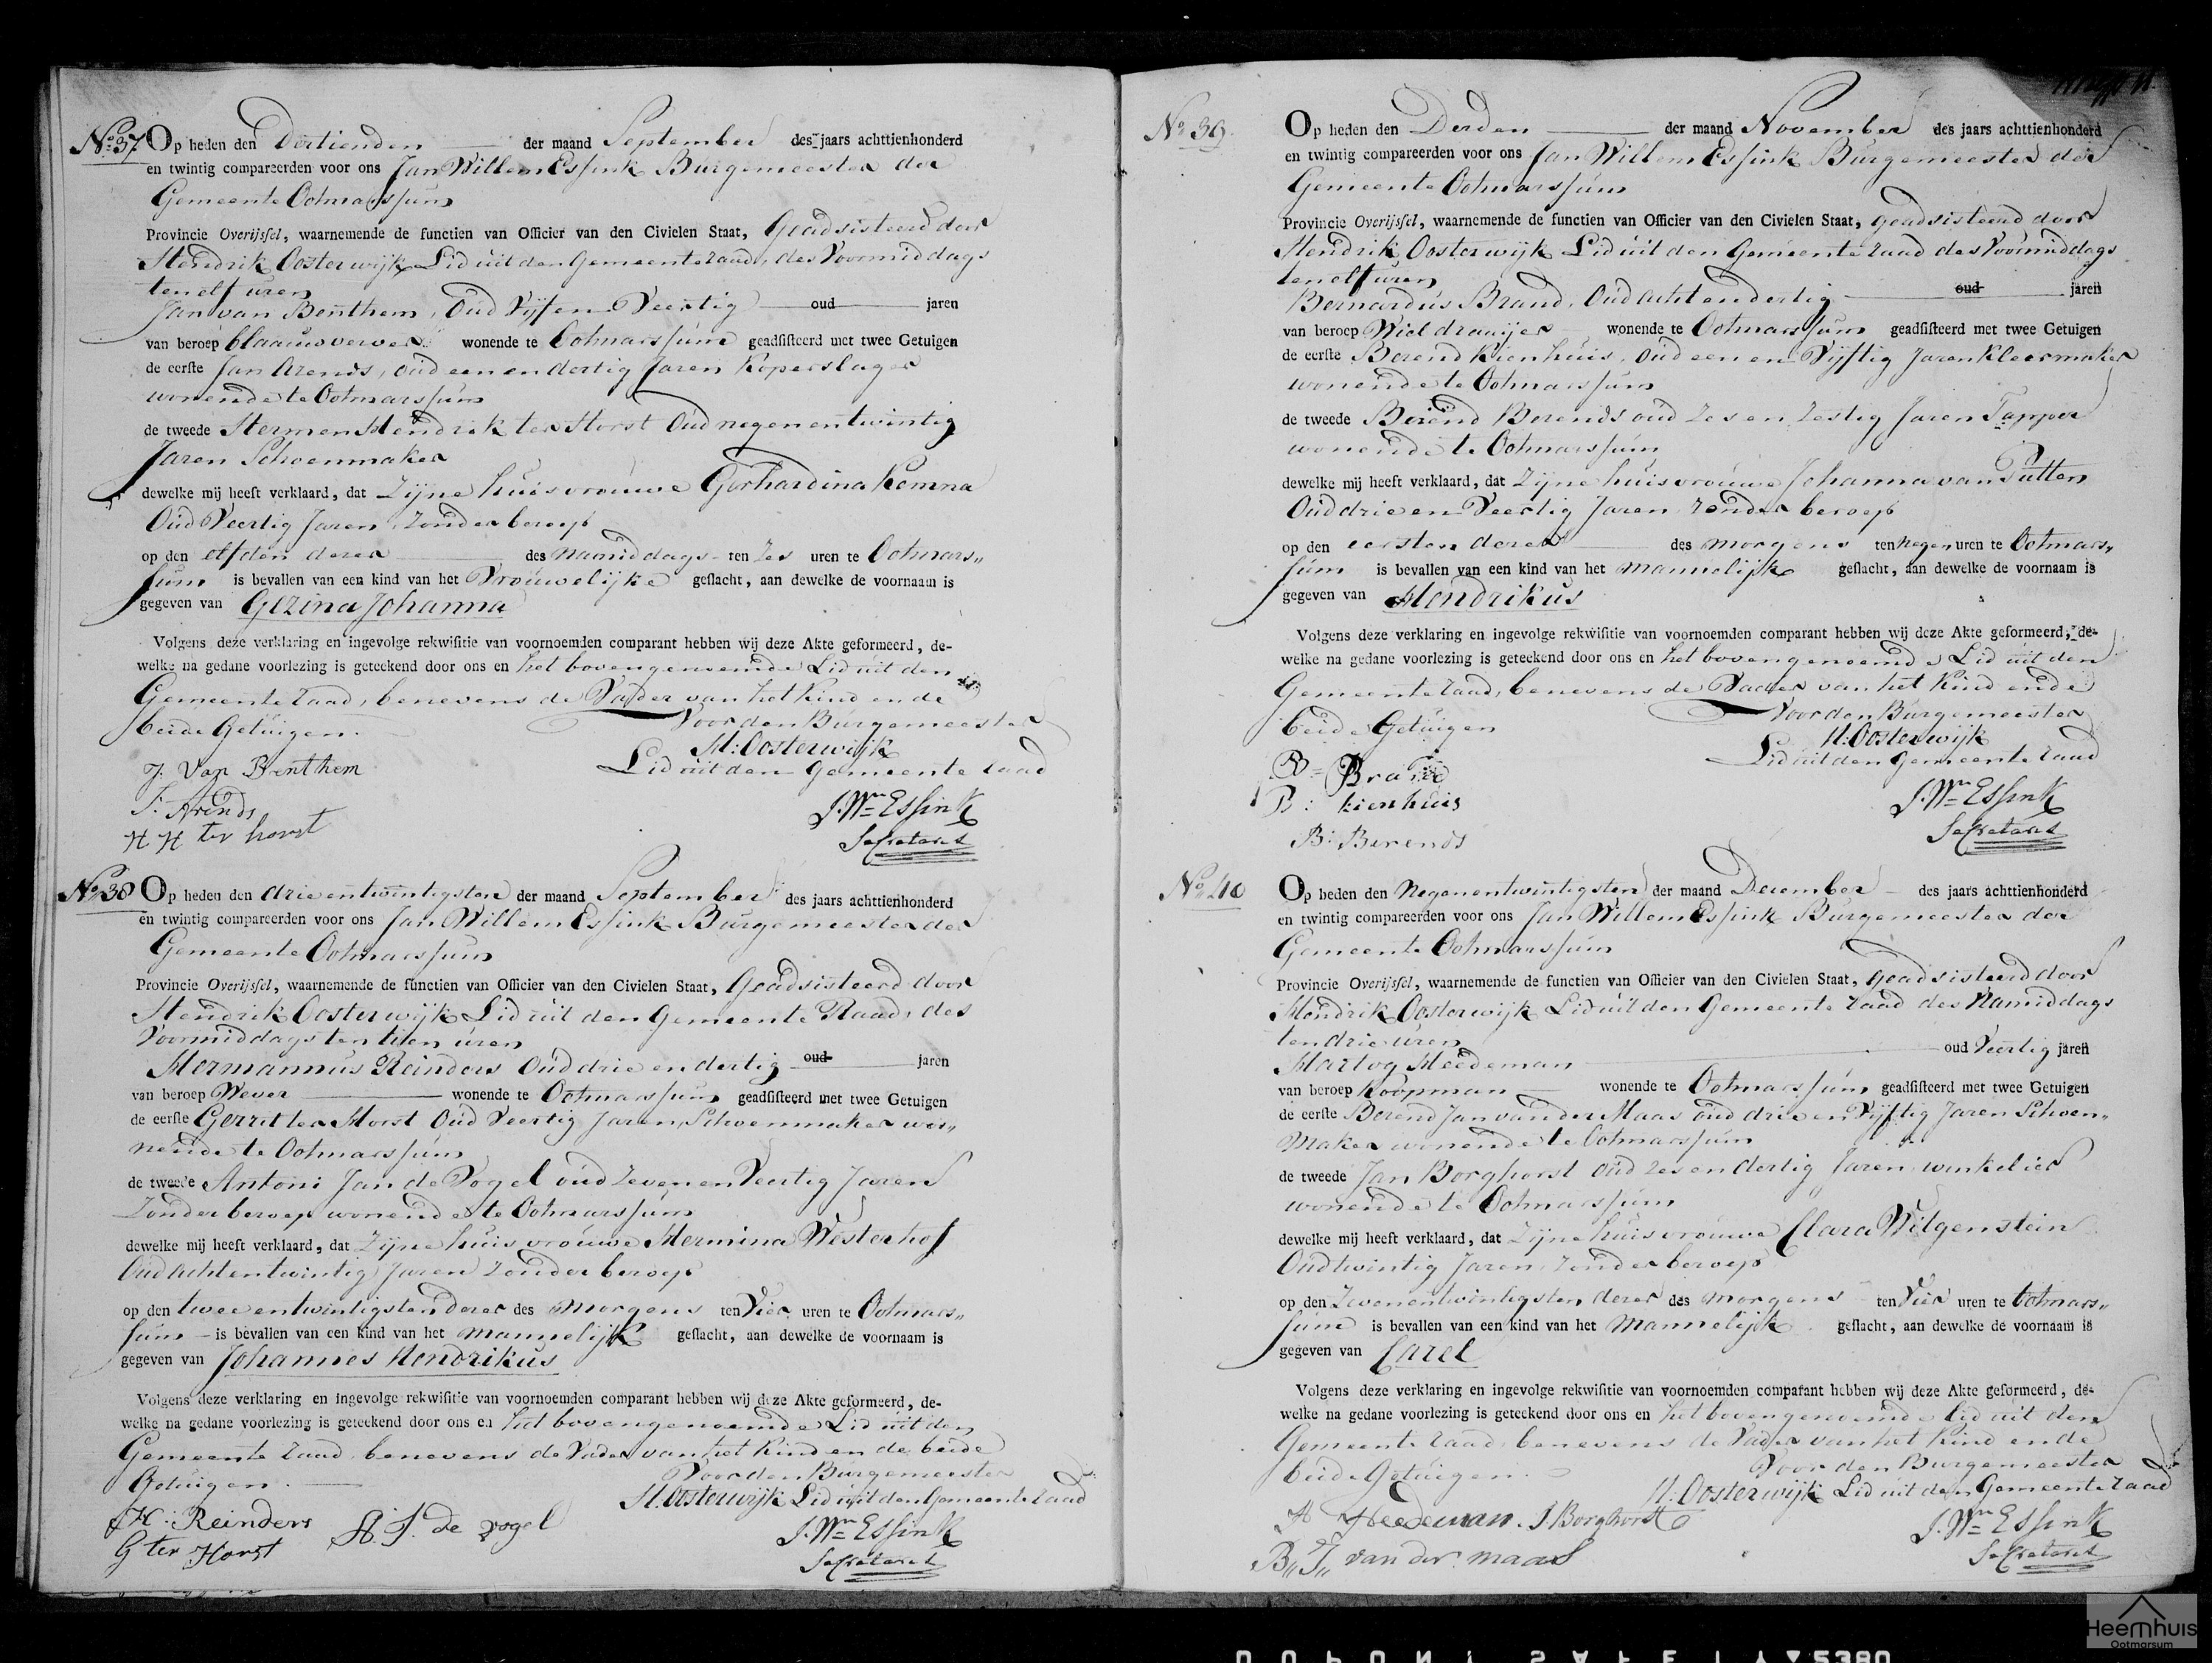 No. 37 Op heden den Dertienden der maand September des jaars achttienhonderd
en twintig compareerden voor ons Jan Willem Essink Burgemeester der
Gemeente Ootmarssum
Provincie Overijssel, waarnemende de functien van Officier van den Civielen Staat, Geadsisteerd door
Hendrik Oosterwijk Lid uit den Gemeente raad, des Voormiddags
ten elf uren
Jan van Benthem, Oud Vijf en Veertig oud jaren
van beroep blaauwverver wonende te Ootmarssum geadsisteerd met twee Getuigen
de eerste Jan Arends, oud een en dertig Jaren Koperslager
wonende te Ootmarssum
de tweede Hermen Hendrik ter Horst Oud negen en twintig
Jaren Schoenmaker
dewelke mij heeft verklaard, dat Zijne huisvrouwe Gerhardina Kemna
Oud Veertig Jaren, zonder beroep
op den elfden dezer des namiddags ten Zes uren te Ootmars„
sum is bevallen van een kind van het Vrouwelijke geslacht, aan dewelke de voornaam is
gegeven van Gezina Johanna
Volgens deze verklaring en ingevolge rekwisitie van voornoemden comparant hebben wij deze Akte geformeerd, de-
welke na gedane voorlezing is geteekend door ons en het bovengenoemde Lid uit den
Gemeente raad, benevens de Vader van het Kind en de
beide Getuigen.
Voor den Burgemeester
H: Oosterwijk
Lid uit den Gemeente raad
J: Van Benthem
J: Arends
H H ter horst
J. Wm Essink
Secretaris
No. 38 Op heden den drie en twintigsten der maand September des jaars achttienhonderd
en twintig compareerden voor ons Jan Willem Essink Burgemeester der
Gemeente Ootmarssum
Provincie Overijssel, waarnemende de functien van Officier van den Civielen Staat, Geadsisteerd door
Hendrik Oosterwijk Lid uit den Gemeente Raad, des
Voormiddags ten tien uren
Hermannus Reinders Oud drie en dertig oud jaren
van beroep Wever wonende te Ootmarssum geadsisteerd met twee Getuigen
de eerste Gerrit ter Horst Oud Veertig Jaren, Schoenmaker wo„
nende te Ootmarssum
de tweede Antoni Jan de Vogel oud zeven en Veertig Jaren
Zonder beroep wonende te Ootmarssum
dewelke mij heeft verklaard, dat Zijne huisvrouwe Hermina Westerhof
Oud Acht en twintig Jaren zonder beroep
op den twee en twintigsten dezer des morgens ten Vier uren te Ootmars„
sum is bevallen van een kind van het mannelijk geslacht, aan dewelke de voornaam is
gegeven van Johannes Hendrikus
Volgens deze verklaring en ingevolge rekwisitie van voornoemden comparant hebben wij deze Akte geformeerd, de-
welke na gedane voorlezing is geteekend door ons en het bovengenoemde Lid uit den
Gemeente raad, benevens de Vader van het Kind en de beide
Getuigen.
Voor den Burgemeester
H. Oosterwijk Lid uit den Gemeente raad
H: Reinders A. J. de vogel
G ter Horst
J. Wm Essink
Secretaris
No. 39 Op heden den Derden der maand November des jaars achttienhonderd
en twintig compareerden voor ons Jan Willem Essink Burgemeester der
Gemeente Ootmarssum
Provincie Overijssel, waarnemende de functien van Officier van den Civielen Staat, geadsisteerd door
Hendrik Oosterwijk Lid uit den Gemeente raad des Voormiddags
ten elf uren
Bernardus Brand, Oud acht en dertig oud jaren
van beroep Wieldraaijer wonende te Ootmarssum geadsisteerd met twee Getuigen
de eerste Berend Kienhuis, oud een en Vijftig Jaren Kleermaker
wonende te Ootmarssum
de tweede Berend Berends oud Zes en Zestig Jaren Tapper
wonende te Ootmarssum
dewelke mij heeft verklaard, dat Zijne huisvrouwe Johanna van Putten
Oud drie en Veertig Jaren zonder beroep
op den eersten dezer des morgens ten negen uren te Ootmars„
sum is bevallen van een kind van het mannelijk geslacht, aan dewelke de voornaam is
gegeven van Hendrikus
Volgens deze verklaring en ingevolge rekwisitie van voornoemden comparant hebben wij deze Akte geformeerd, de-
welke na gedane voorlezing is geteekend door ons en het bovengenoemde Lid uit den
Gemeente raad, benevens de Vader van het Kind en de
beide Getuigen
Voor den Burgemeester
H: Oosterwijk
Lid uit den Gemeente raad
B= Brand
B: kienhuis
B: Berends
J. Wm Essink
Secretaris
No. 40 Op heden den Negen en twintigsten der maand December des jaars achttienhonderd
en twintig compareerden voor ons Jan Willem Essink Burgemeester der
Gemeente Ootmarssum
Provincie Overijssel, waarnemende de functien van Officier van den Civielen Staat, geadsisteerd door
Hendrik Oosterwijk Lid uit den Gemeente raad des Namiddags
ten drie uren
Hartog Meedeman oud Veertig jaren
van beroep Koopman wonende te Ootmarssum geadsisteerd met twee Getuigen
de eerste Berend Jan van der Maas oud drie en Vijftig Jaren Schoen„
maker wonende te Ootmarssum
de tweede Jan Borghorst oud zes en dertig Jaren winkelier
wonende te Ootmarssum
dewelke mij heeft verklaard, dat Zijne huisvrouwe Clara Witgenstein
Oud twintig Jaren, zonder beroep
op den Zeven en twintigsten dezer des morgens ten Vier uren te Ootmars„
sum is bevallen van een kind van het Mannelijk geslacht, aan dewelke de voornaam is
gegeven van Carel
Volgens deze verklaring en ingevolge rekwisitie van voornoemden comparant hebben wij deze Akte geformeerd, de-
welke na gedane voorlezing is geteekend door ons en het bovengenoemde lid uit den
Gemeente raad, benevens de Vader van het Kind en de
beide Getuigen.
Voor den Burgemeester
H: Oosterwijk Lid uit den Gemeente raad
J Borghorst
B„ J„ van der maas
J. Wm Essink
Secretaris
Heemhuis
Ootmarsum